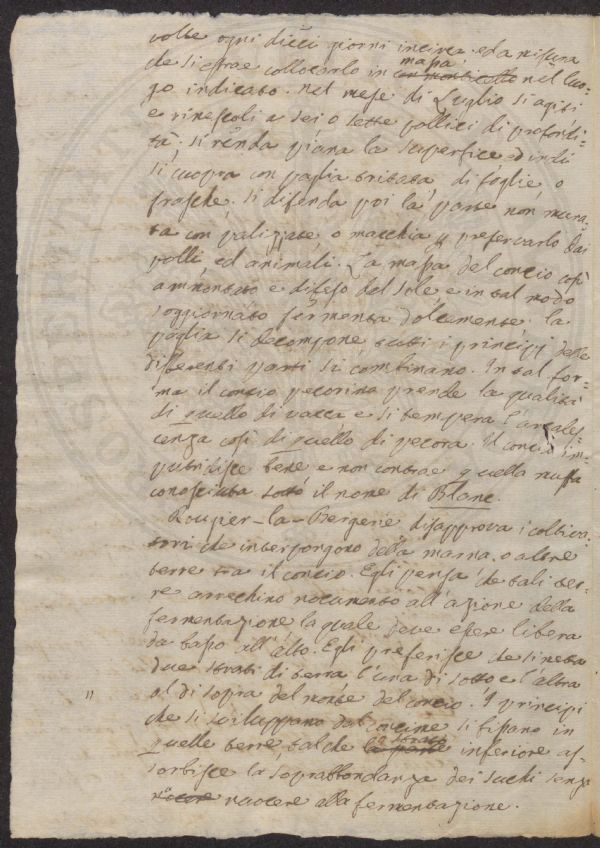 volte ogni dieci giorni incirca. ed a misura
che si estrae collocarlo in massa con monticello nel luo=
go indicato. Nel mese di Luglio si agiti
e rimescoli a sei o sette pollici di profondi=
tà. si renda piana la superfice e dindi
si cuopra con paglia tritata di foglie o
frasche. si difenda poi la parte non mura=
ta con palizzate o macchia p preservarlo dai
polli ed animali. La massa del concio così
ammontato e difeso del sole e in tal modo
soggiornato fermenta dolcemente. la
paglia si decompone tutti i principj delle
differenti parti si combinano. In tal for=
ma il concio pecorino prende la qualità
di quello di vacca e si tempera
cenza così di quello di pecora. Il concio im=
putridisce bene e non contrae quella muffa
conosciuta sotto il nome di Blanc.
Rougier-la-Bergerie disapprova i coltiva=
tori che interpongono della marna o altre
terre tra il concio. Egli pensa che tali ter=
re arrechino nocumento all'azione della
fermentazione la quale deve essere libera
da basso all'alto. Egli preferisce che si metta
due strati di terra l'una di sotto e l'altra
al di sopra del monte del concio. I principi
che si sviluppano dal concime si fissano in
quelle terre, talche la parte o strato inferiore as=
sorbisce la soprabbondanza dei succhi senza
nuocere alla fermentazione.